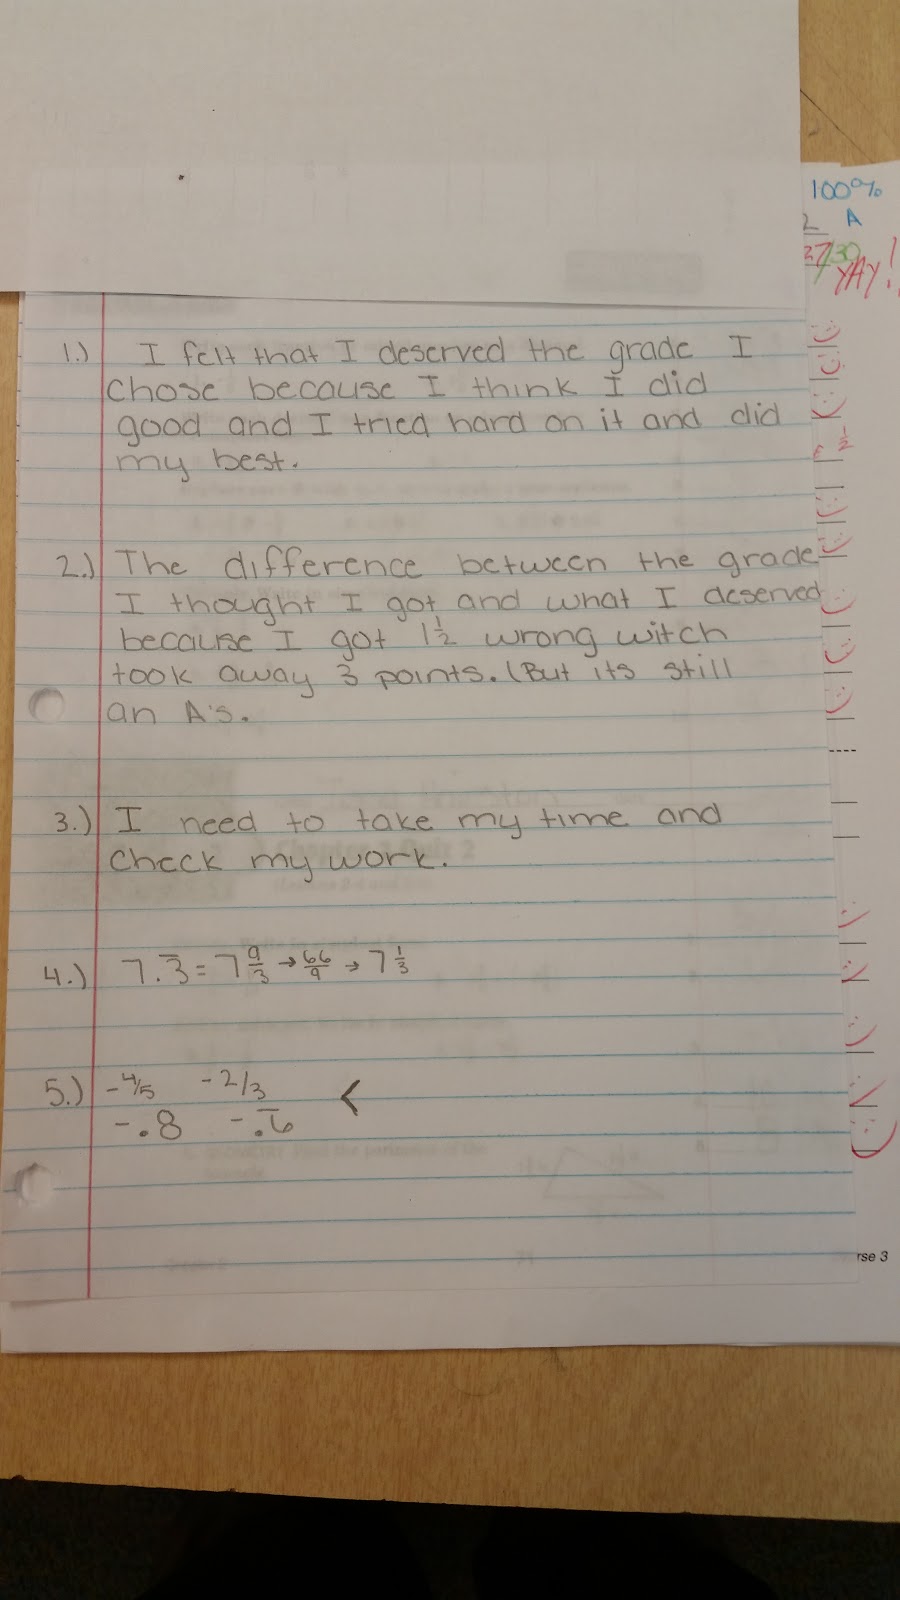 100%
2 A
27/30
YAY!
1.) I felt that I deserved the grade I
chose because I think I did
good and I tried hard on it and did
my best.
1/2
2.) The difference between the grade
I thought I got and what I deserved
because I got 1 1/2 wrong witch
took away 3 points. (But its still
an A's.
3.) I need to take my time and
check my work.
4.) 7.3̅ = 7 9/3 → 66/9 → 7 1/3
5.) -4/5 -2/3 <
-.8 -.6̅
rse 3